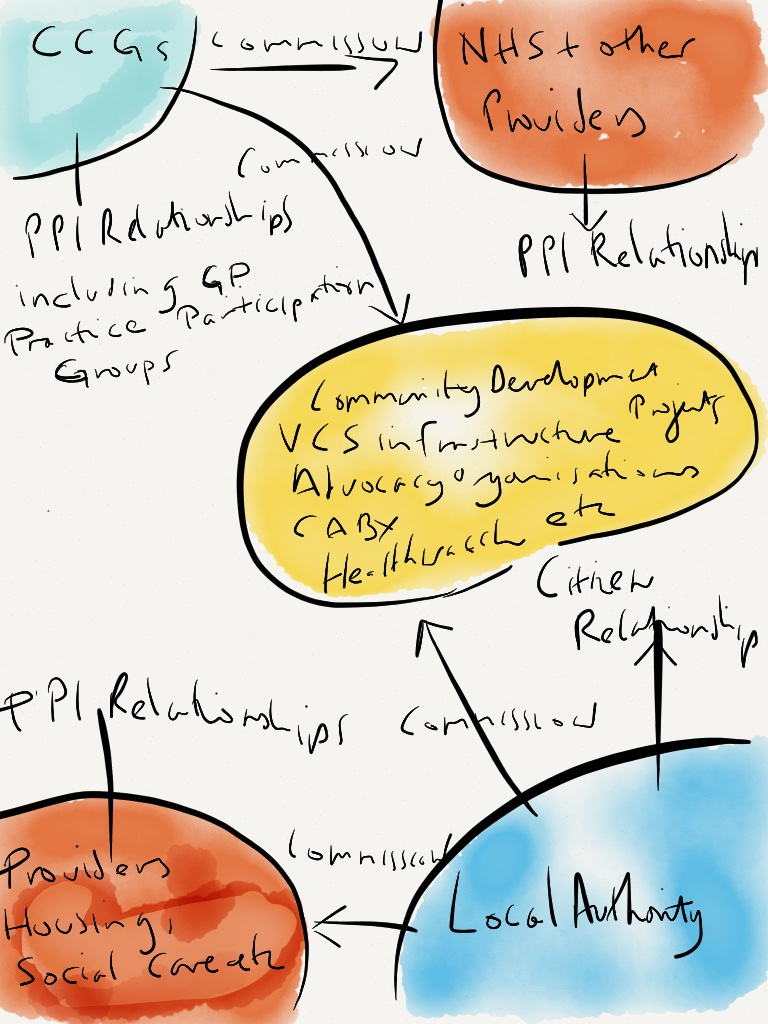 CCGs
Commission
NHS + other
Providers
Commission
PPI Relationships
including GP
Practice Participation
Groups
PPI Relationship
Community Development
Projects
VCS infrastructure
Advocacy organisations
CABx
Healthwatch etc
Citizen
Relationship
PPI Relationships
Commission
Commission
Providers
Housing,
Social Care etc
Local Authority